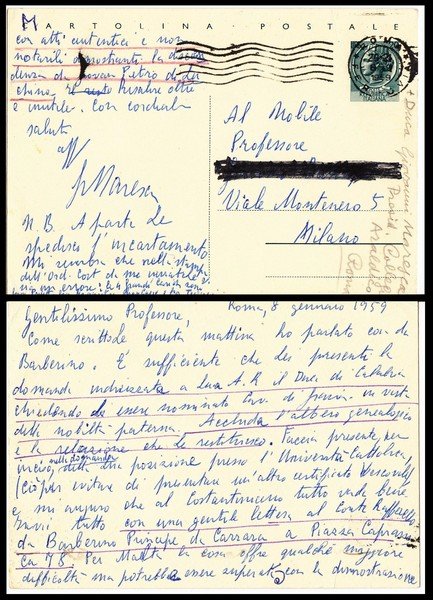 CARTOLINA POSTALE
con atti autentici e non
notarili dimostranti la discen
denza da Giovan Pietro di Lu
chino. Il resto risulta oltre
e inutile. Con cordiali
saluti
aff
N.B. A parte le
spedisco l'incartamento
Mi sembra che nella stampa
dell'Ord. Cost. da me inviatole
Al Nobile
Professore
Viale Montenero 5
Milano
+ Duca Giovanni Maresca
Roma
Roma, 8 gennaio 1959
Gentilissimo Professore,
Come scrittole questa mattina ho parlato con da
Barberino. È sufficiente che Lei presenti la
domanda indirizzata a S.A.R. il Duca di Calabria
chiedendo di essere nominato Cav. di grazia in vista
della nobiltà paterna. Accluda l'albero genealogico
e la relazione che Le restituisco. Faccia presente, per
inciso, nella domanda della Sua posizione presso l'Università Cattolica,
(ciò per evitare di presentare un'altro certificato
e mi auguro che al Costantiniano tutto vada bene.
Invii tutto con una gentile lettera al Conte Raffaello
da Barberino Principe da Carrara a Piazza Capranica
78. Per Malta la cosa offre qualche maggiore
difficoltà ma potrebbe essere superata con la dimostrazione